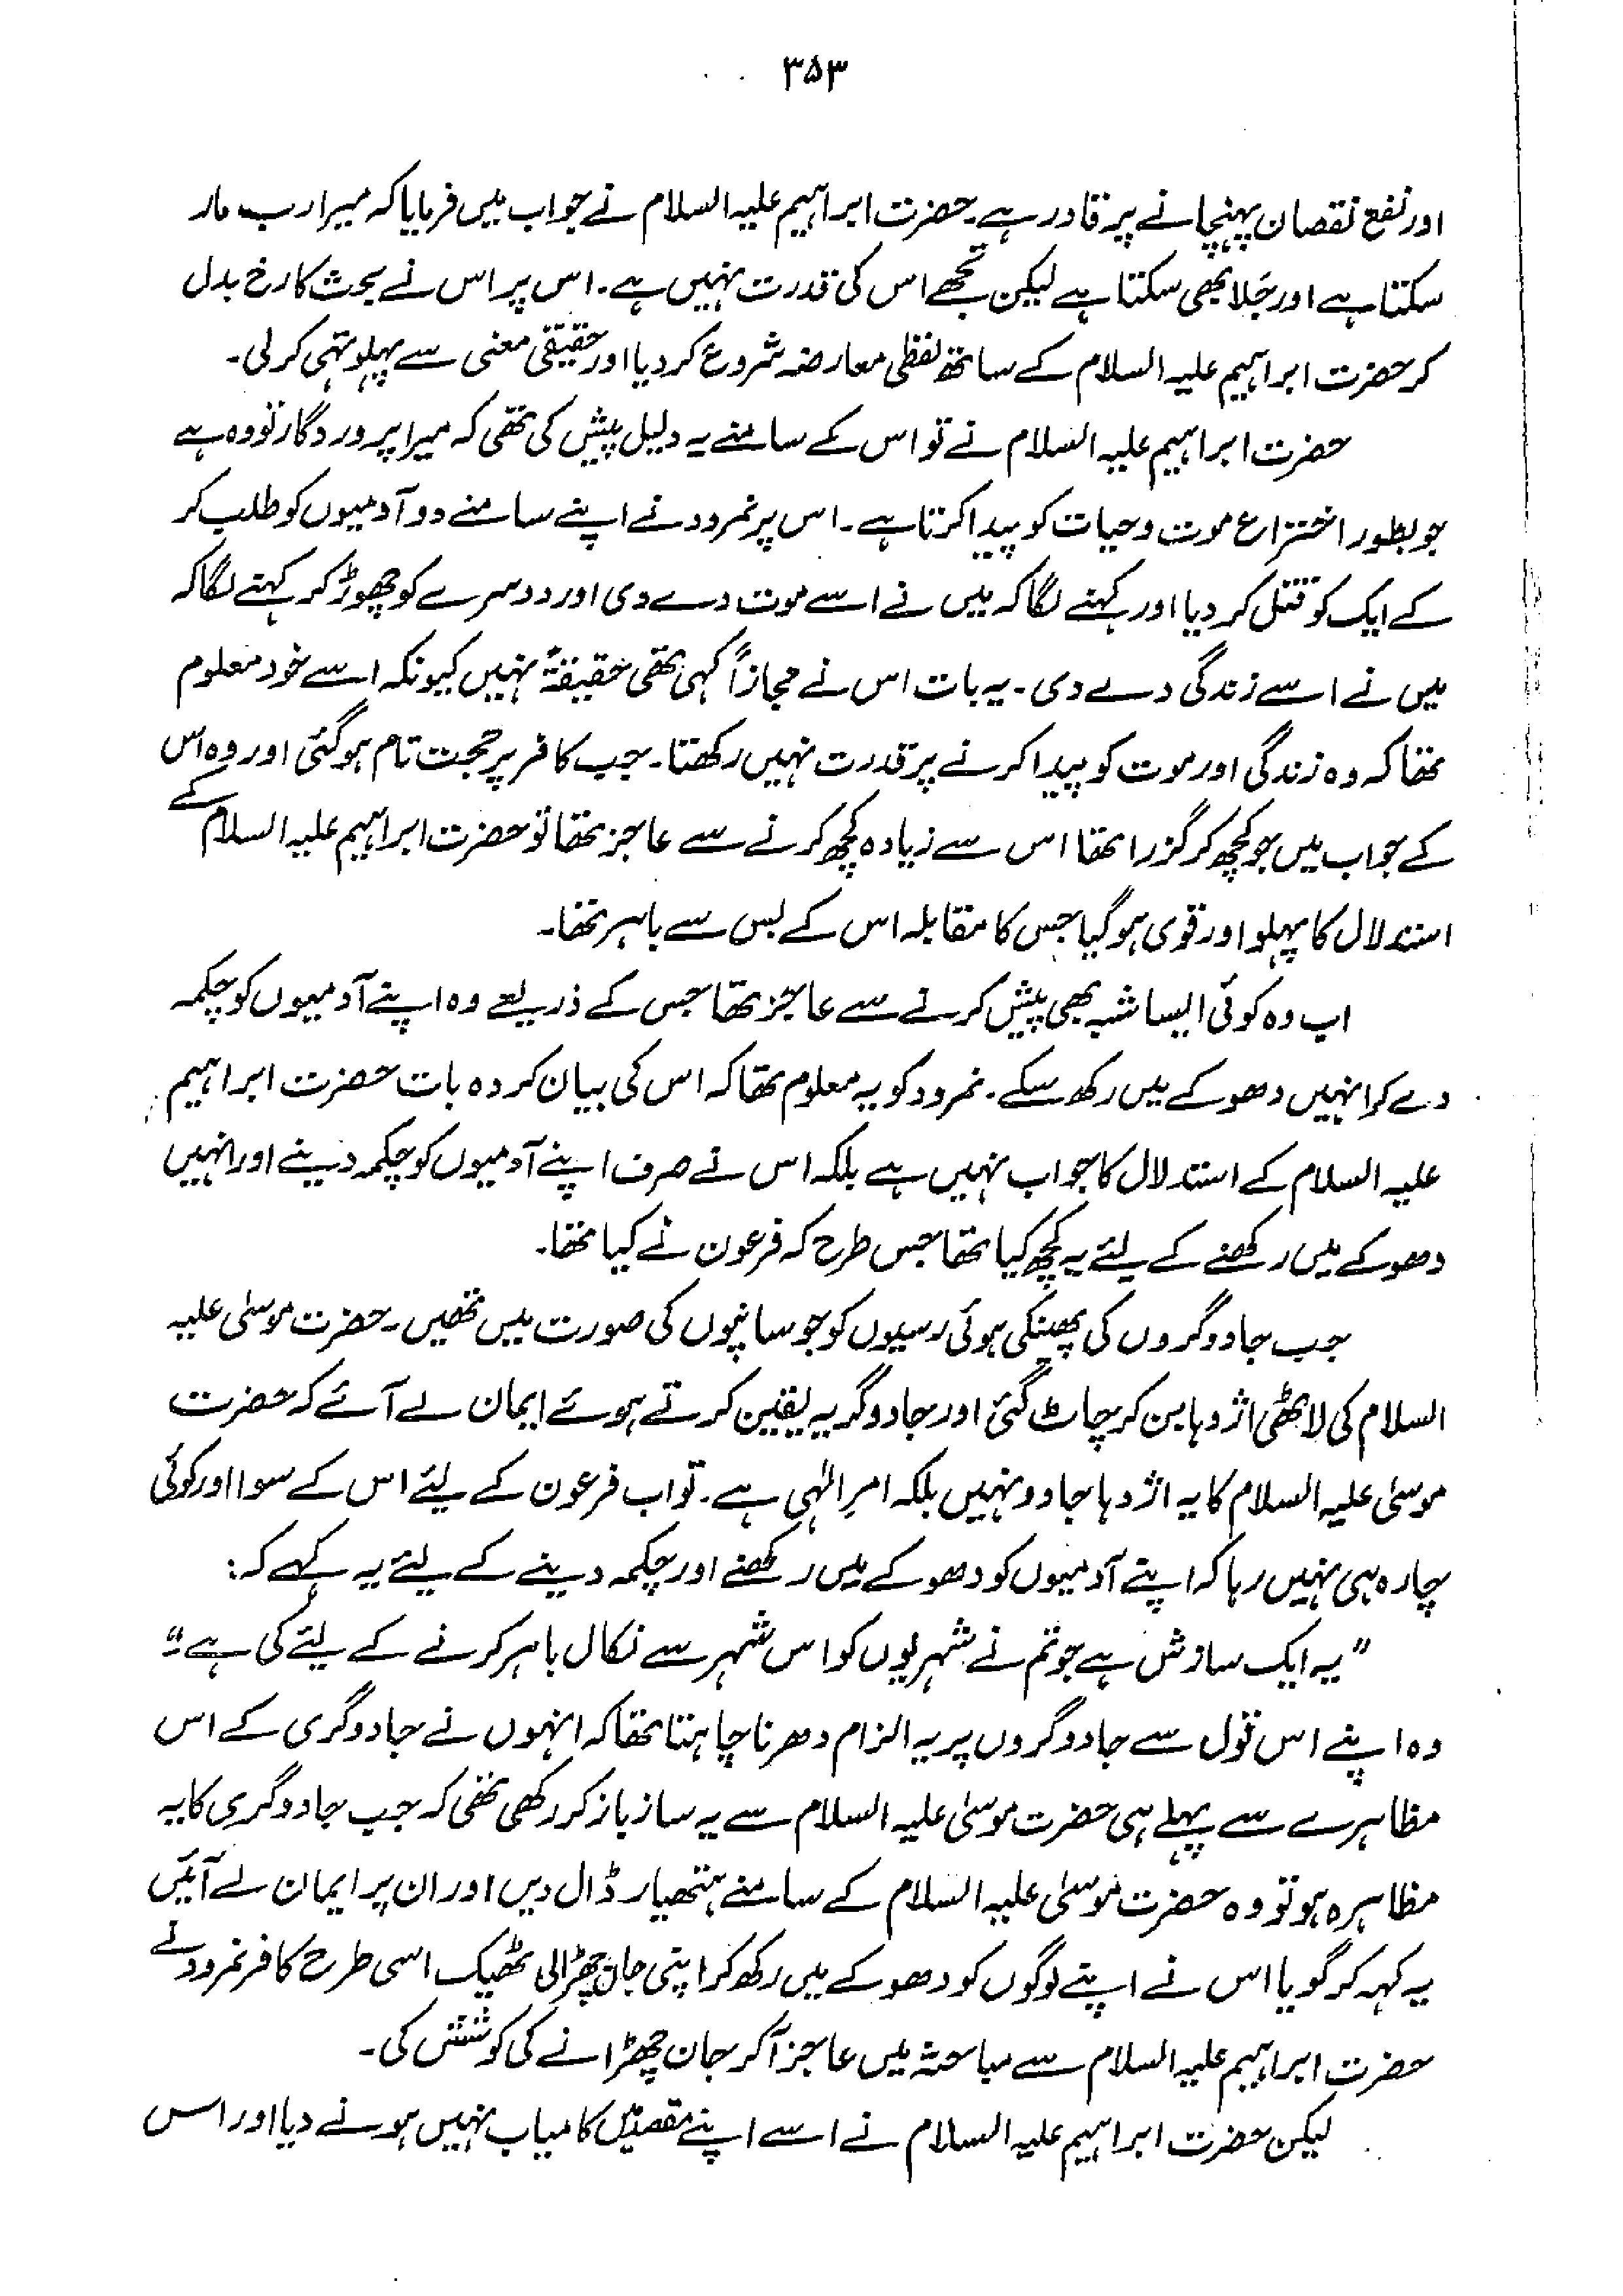 ۳۵۳
اور نفع نقصان پہنچانے پر قادر ہے۔ حضرت ابراہیم علیہ السلام نے جواب میں فرمایا کہ میرا رب مار
سکتا ہے اور جَلا بھی سکتا ہے لیکن تجھے اس کی قدرت نہیں ہے۔ اس پر اس نے بحث کا رخ بدل
کر حضرت ابراہیم علیہ السلام کے ساتھ لفظی معارضہ شروع کر دیا اور حقیقی معنی سے پہلو تہی کر لی۔
حضرت ابراہیم علیہ السلام نے تو اس کے سامنے یہ دلیل پیش کی تھی کہ میرا پروردگار تو وہ ہے
جو بطور اختراع موت و حیات کو پیدا کرتا ہے۔ اس پر نمرود نے اپنے سامنے دو آدمیوں کو طلب کر
کے ایک کو قتل کر دیا اور کہنے لگا کہ میں نے اسے موت دے دی اور دوسرے کو چھوڑ کر کہنے لگا کہ
میں نے اسے زندگی دے دی۔ یہ بات اس نے مجازاً کہی تھی حقیقۃً نہیں کیونکہ اسے خود معلوم
تھا کہ وہ زندگی اور موت کو پیدا کرنے پر قدرت نہیں رکھتا۔ جب کافر پر حجت تام ہو گئی اور وہ اس
کے جواب میں جو کچھ کر گزرا تھا اس سے زیادہ کچھ کرنے سے عاجز تھا تو حضرت ابراہیم علیہ السلام کے
استدلال کا پہلو اور قوی ہو گیا جس کا مقابلہ اس کے بس سے باہر تھا۔
اب وہ کوئی ایسا شبہ بھی پیش کرنے سے عاجز تھا جس کے ذریعے وہ اپنے آدمیوں کو چکمہ
دے کر انہیں دھوکے میں رکھ سکے۔ نمرود کو یہ معلوم تھا کہ اس کی بیان کردہ بات حضرت ابراہیم
علیہ السلام کے استدلال کا جواب نہیں ہے بلکہ اس نے صرف اپنے آدمیوں کو چکمہ دینے اور انہیں
دھوکے میں رکھنے کے لئے یہ کچھ کیا تھا جس طرح کہ فرعون نے کیا تھا۔
جب جادوگروں کی پھینکی ہوئی رسیوں کو جو سانپوں کی صورت میں تھیں۔ حضرت موسیٰ علیہ
السلام کی لاٹھی اژدہا بن کر چاٹ گئی اور جادوگر یہ یقین کرتے ہوئے ایمان لے آئے کہ حضرت
موسیٰ علیہ السلام کا یہ اژدہا جادو نہیں بلکہ امرِ الٰہی ہے۔ تو اب فرعون کے لئے اس کے سوا اور کوئی
چارہ ہی نہیں رہا کہ اپنے آدمیوں کو دھوکے میں رکھنے اور چکمہ دینے کے لئے یہ کہے کہ:
"یہ ایک سازش ہے جو تم نے شہریوں کو اس شہر سے نکال باہر کرنے کے لئے کی ہے"
وہ اپنے اس قول سے جادوگروں پر یہ الزام دھرنا چاہتا تھا کہ انہوں نے جادوگری کے اس
مظاہرے سے پہلے ہی حضرت موسیٰ علیہ السلام سے یہ ساز باز کر رکھی تھی کہ جب جادوگری کا یہ
مظاہرہ ہو تو وہ حضرت موسیٰ علیہ السلام کے سامنے ہتھیار ڈال دیں اور ان پر ایمان لے آئیں
یہ کہہ کر گویا اس نے اپنے لوگوں کو دھوکے میں رکھ کر اپنی جان چھڑالی ٹھیک اسی طرح کافر نمرود نے
حضرت ابراہیم علیہ السلام سے مباحثہ میں عاجز آ کر جان چھڑانے کی کوشش کی۔
لیکن حضرت ابراہیم علیہ السلام نے اسے اپنے مقصد میں کامیاب نہیں ہونے دیا اور اس